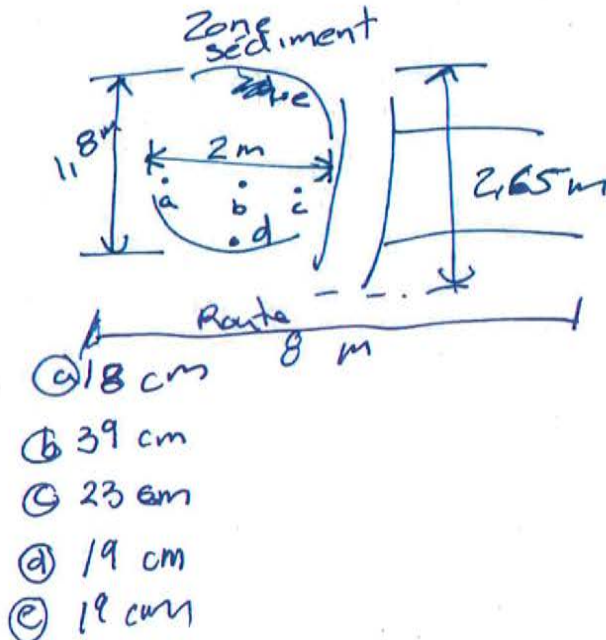 Zone
sédiment
e
1,8m
2m
a
b
c
d
2,65m
Route
8 m
ⓐ 18 cm
ⓑ 39 cm
ⓒ 23 cm
ⓓ 19 cm
ⓔ 19 cm